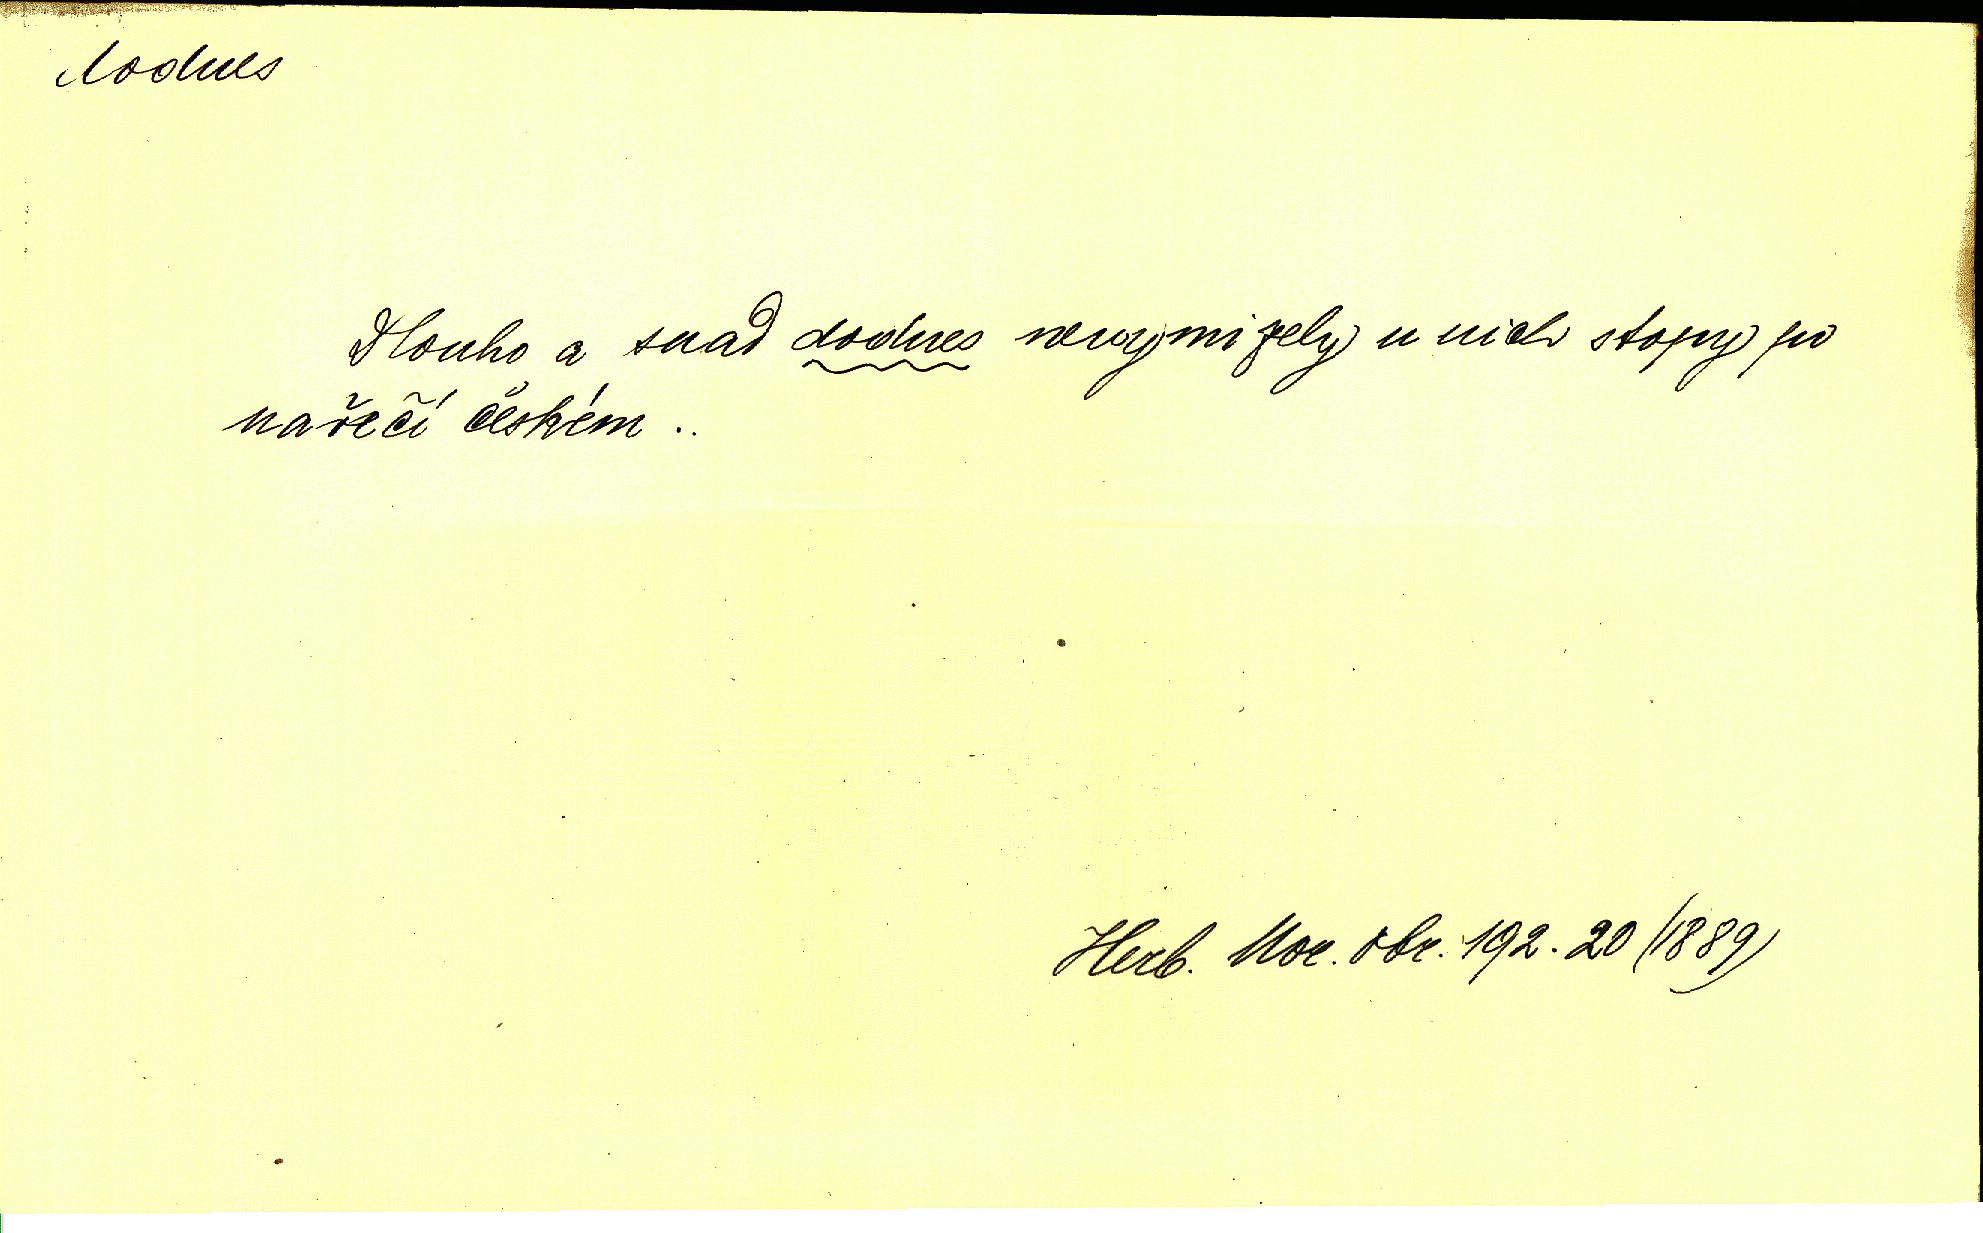 dodnes
Dlouho a snad dodnes nevymizely u nich stopy po
nářečí českém ..
Herb. Mor. obr. 192.20 (1889)